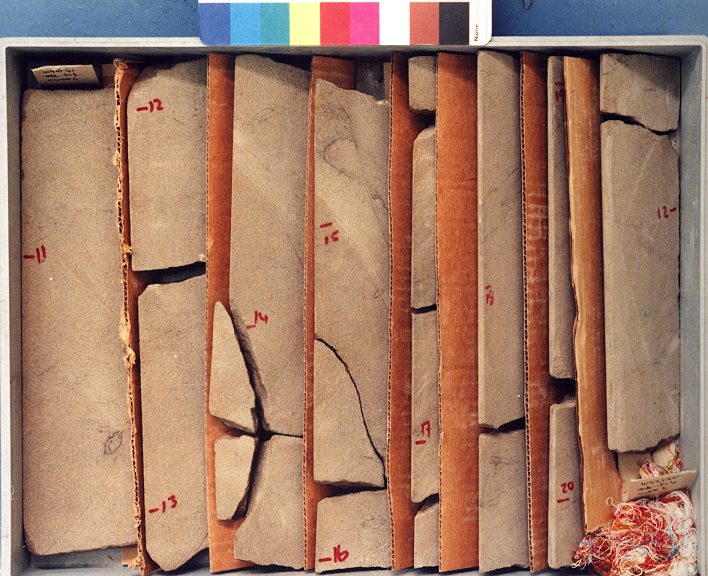 Name
-11
-12
-13
-14
-15
-16
-17
18
19
-20
12-